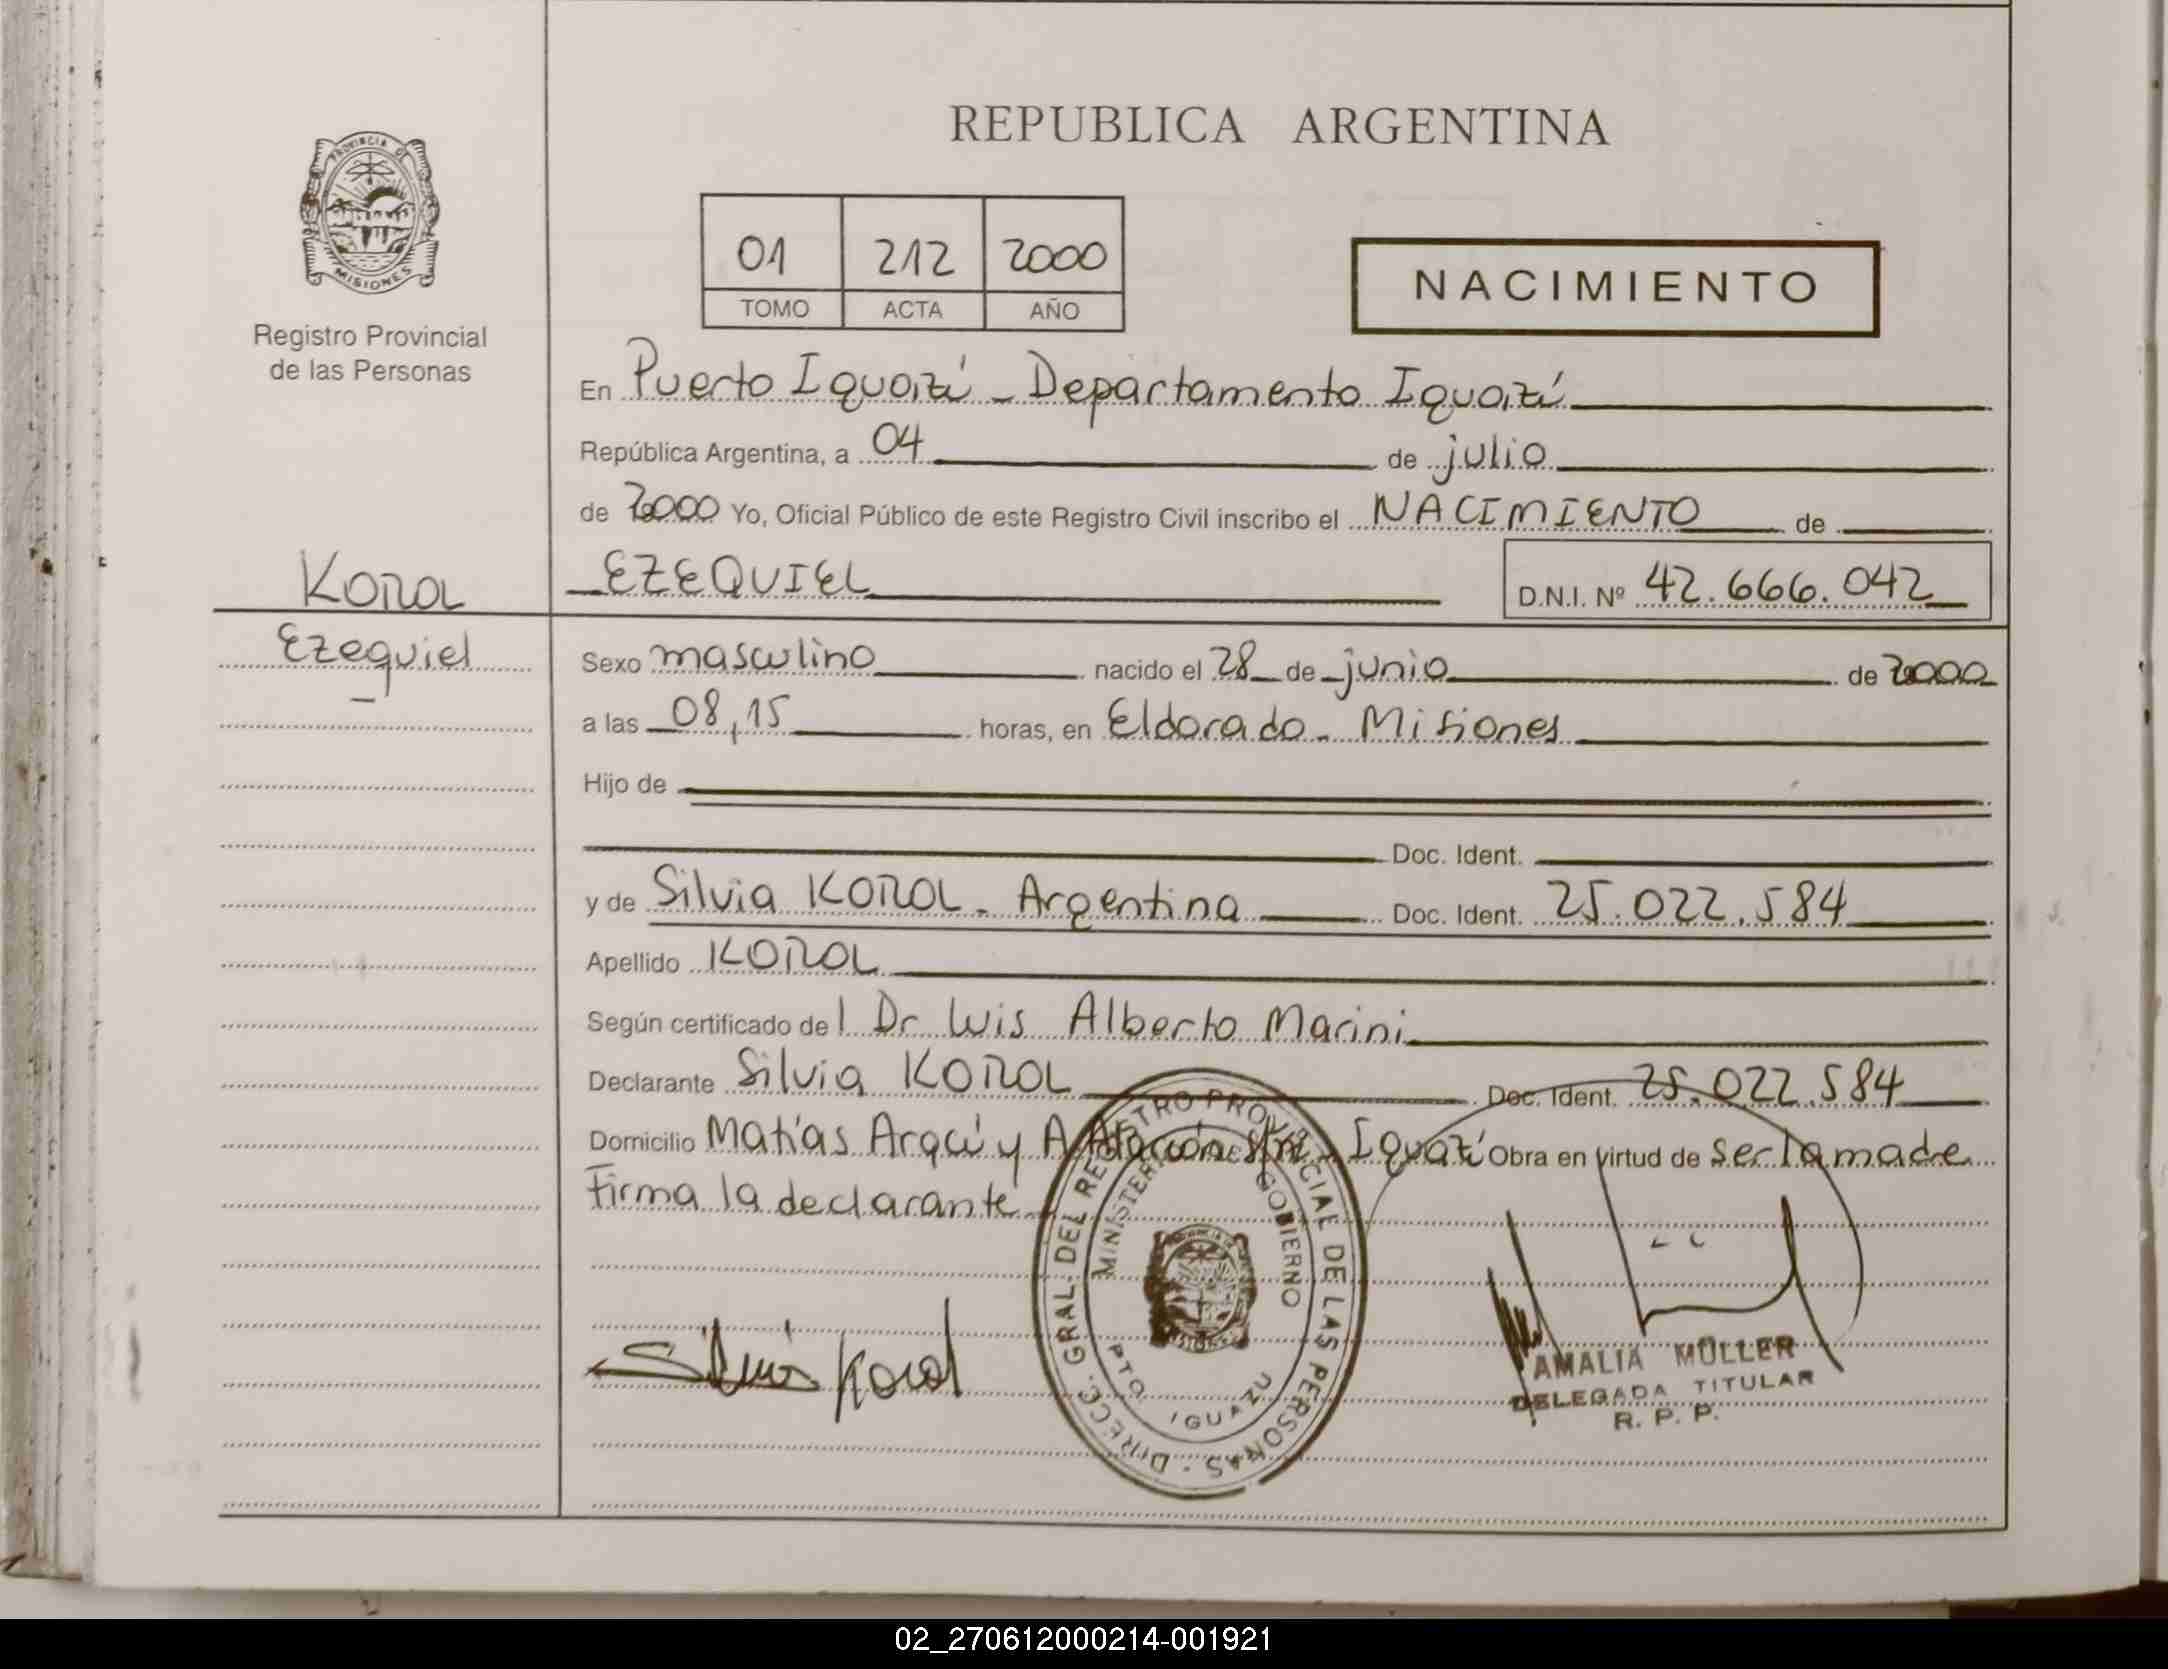 REPUBLICA ARGENTINA
PROVINCIA DE
MISIONES
Registro Provincial
de las Personas
01 212 2000
TOMO ACTA AÑO
NACIMIENTO
En Puerto Iguazú - Departamento Iguazú
República Argentina, a 04 de julio
de 2000 Yo, Oficial Público de este Registro Civil inscribo el NACIMIENTO de
KOROL
EZEQUIEL D.N.I. Nº 42.666.042
Ezequiel
Sexo masculino nacido el 28 de junio de 2000
a las 08,15 horas, en Eldorado - Misiones
Hijo de
Doc. Ident.
y de Silvia KOROL - Argentina Doc. Ident. 25.022.584
Apellido KOROL
Según certificado del Dr Luis Alberto Marini
Declarante Silvia KOROL Doc. Ident. 25.022.584
Domicilio Matías Aracú y A s/n - Iguazú Obra en virtud de ser la madre
Firma la declarante
Silvia Korol
DIRECC. GRAL. DEL REGISTRO PROVINCIAL DE LAS PERSONAS
MINISTERIO DE GOBIERNO
PTO. IGUAZU
AMALIA MÜLLER
DELEGADA TITULAR
R. P. P.
02_270612000214-001921